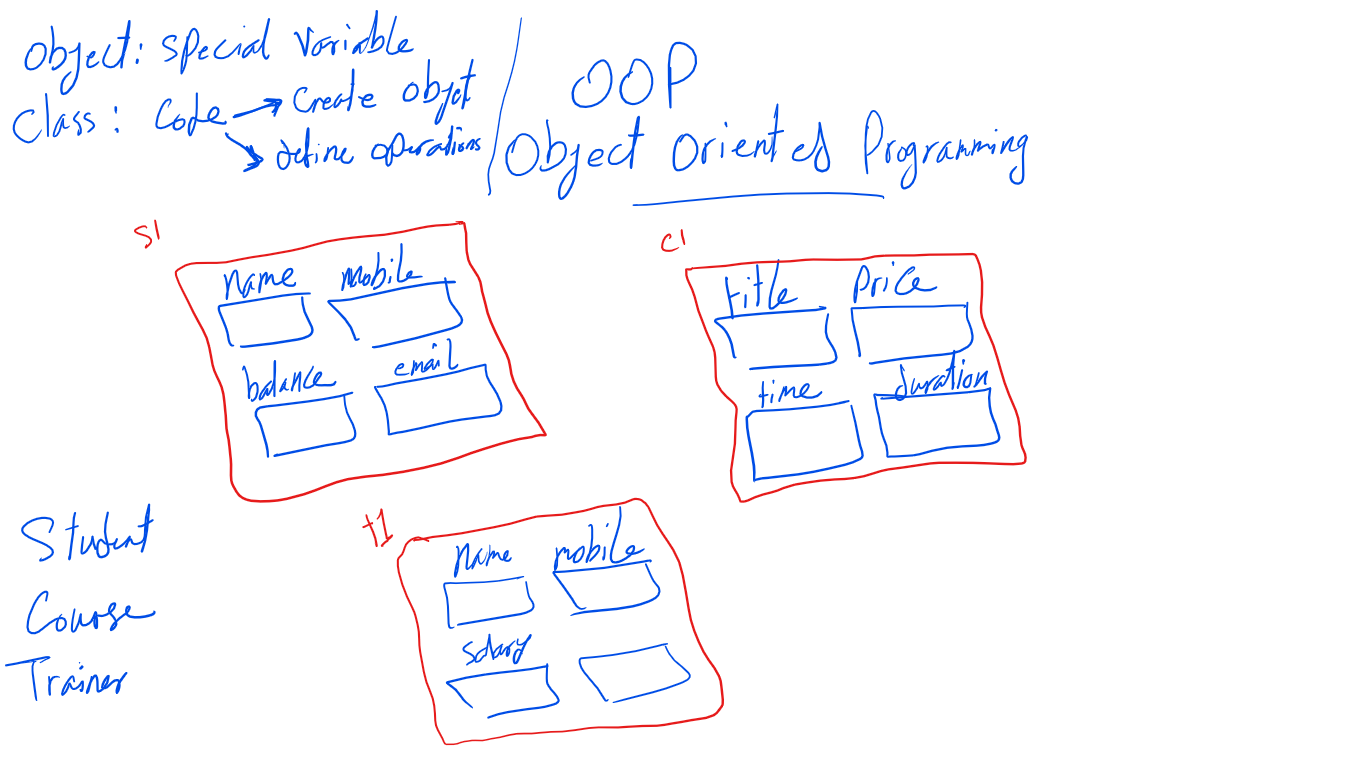 Object: special variable
Class: Code → Create objet
define operations
OOP
Object Oriented Programming
s1
name mobile
balance email
c1
title price
time duration
Student
Course
Trainer
t1
name mobile
salary